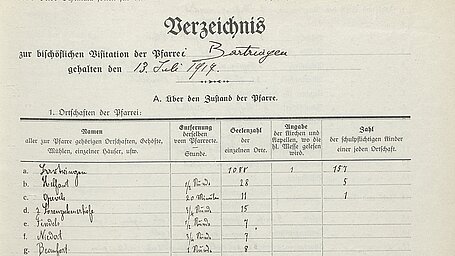 Verzeichnis
zur bischöflichen Visitation der Pfarrei Bartringen
gehalten den 13. Juli 1917.
A. Über den Zustand der Pfarre.
1. Ortschaften der Pfarrei:
Namen
aller zur Pfarre gehörigen Ortschaften, Gehöfte,
Mühlen, einzelner Häuser, usw.
Entfernung
derselben
vom Pfarrorte.
Stunde.
Seelenzahl
der
einzelnen Orte.
Angabe
der Kirchen und
Kapellen, wo die
hl. Messe gelesen
wird.
Zahl
der schulpflichtigen Kinder
einer jeden Ortschaft.
a. Bartringen 1 157
b. Helfent 1/2 Stunde 28 5
c. 20 Minuten 11 1
d. 3/4 Stunde 15
e. 1/2 Stunde 7
f. 3/4 Stunde 7
g. 1 Stunde 8